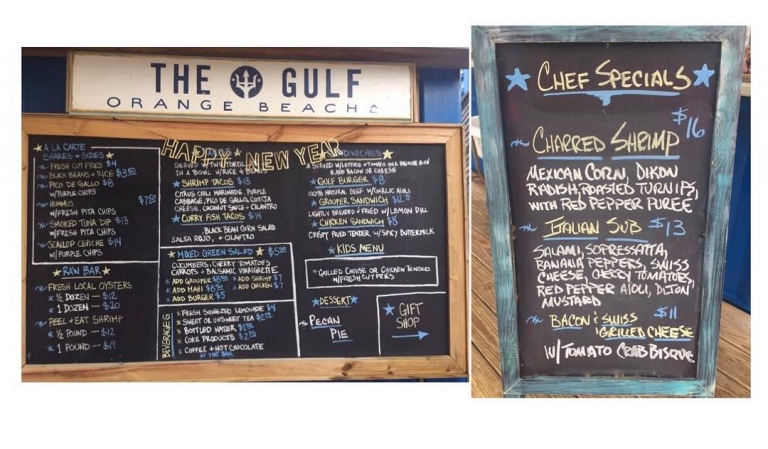 THE GULF
ORANGE BEACH
HAPPY NEW YEAR
A LA CARTE
SHARES + SIDES
FRESH CUT FRIES $4
BLACK BEANS + RICE $3.50
PICO DE GALLO $8
W/PURPLE CHIPS
HUMMUS $7.50
W/FRESH PITA CHIPS
SMOKED TUNA DIP $13
W/FRESH PITA CHIPS
SCALLOP CEVICHE $14
W/PURPLE CHIPS
RAW BAR
FRESH LOCAL OYSTERS
½ DOZEN - $12
1 DOZEN - $20
PEEL + EAT SHRIMP
½ POUND - $12
1 POUND - $19
SERVED W/TWO TORTILLAS
IN A BOWL W/RICE + BEANS
SHRIMP TACOS $13
CITRUS CHILI MARINADE, PURPLE
CABBAGE, PICO DE GALLO, COTIJA
CHEESE, COCONUT SAUCE + CILANTRO
CURRY FISH TACOS $14
BLACK BEAN CORN SALAD
SALSA ROJO, + CILANTRO
MIXED GREEN SALAD $5.50
CUCUMBERS, CHERRY TOMATOES
CARROTS + BALSAMIC VINAIGRETTE
ADD GROUPER ADD SHRIMP $7
ADD MAHI ADD CHICKEN $7
ADD BURGER $5
BEVERAGES
FRESH SQUEEZED LEMONADE $4
SWEET OR UNSWEET TEA
BOTTLED WATER
COKE PRODUCTS
COFFEE + HOT CHOCOLATE
AT THE BAR
SANDWICHES
SERVED W/LETTUCE + TOMATO ON A BRIOCHE BUN
ADD BACON OR CHEESE
GULF BURGER $8
100% NATURAL BEEF W/GARLIC AIOLI
GROUPER SANDWICH
LIGHTLY BREADED + FRIED W/LEMON DILL
CHICKEN SANDWICH $8
CRISPY FRIED TENDER W/SPICY BUTTERMILK
KIDS MENU
GRILLED CHEESE OR CHICKEN TENDERS
W/FRESH CUT FRIES
DESSERT
PECAN
PIE
GIFT
SHOP
CHEF SPECIALS
CHARRED SHRIMP $16
MEXICAN CORN, DIKON
RADISH, ROASTED TURNIPS,
WITH RED PEPPER PUREE
ITALIAN SUB $13
SALAMI, SOPRESSATTA,
BANANA PEPPERS, SWISS
CHEESE, CHERRY TOMATOES,
RED PEPPER AIOLI, DIJON
MUSTARD
BACON & SWISS $11
GRILLED CHEESE
W/TOMATO CRAB BISQUE